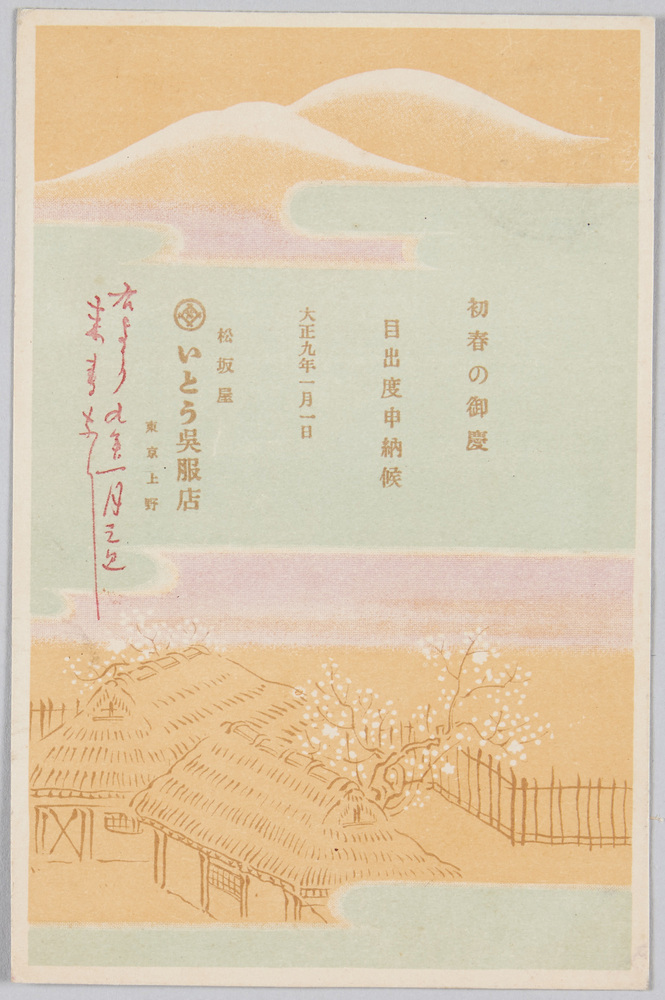 初春の御慶
目出度申納候
大正九年一月一日
松坂屋
いとう呉服店
東京上野
右より九年一月三日